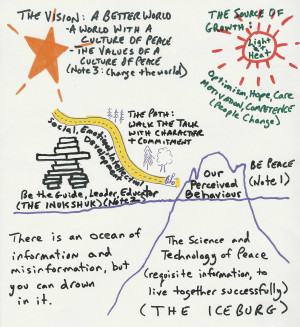 THE VISION: A BETTER WORLD
- A WORLD WITH A
CULTURE OF PEACE
- THE VALUES OF A
CULTURE OF PEACE
(Note 3: Change the world)
THE SOURCE OF
GROWTH:
Light
&
Heat
Optimism, Hope, Care
MOTIVATION, COMPETENCE
(People Change)
THE PATH:
WALK THE TALK
WITH CHARACTER
+ COMMITMENT
Social, Emotional, Intellectual
Development
Be the Guide, Leader, Educator
(THE INUKSHUK) (Note 2)
Our
Perceived
Behaviour
BE PEACE
(Note 1)
There is an ocean of
information and
misinformation, but
you can drown
in it.
The Science and
Technology of Peace
(requisite information, to
live together successfully)
(THE ICEBURG)